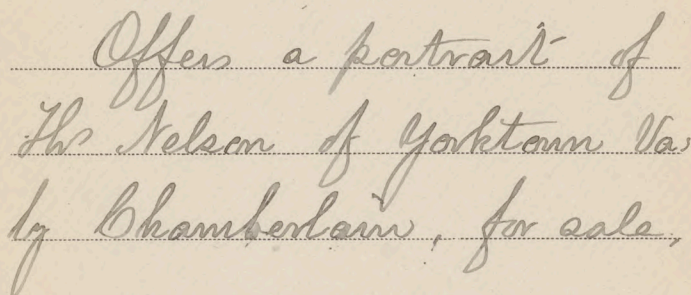 Offers a portrait of
Ths Nelson of Yorktown Va.
by Chamberlain, for sale,